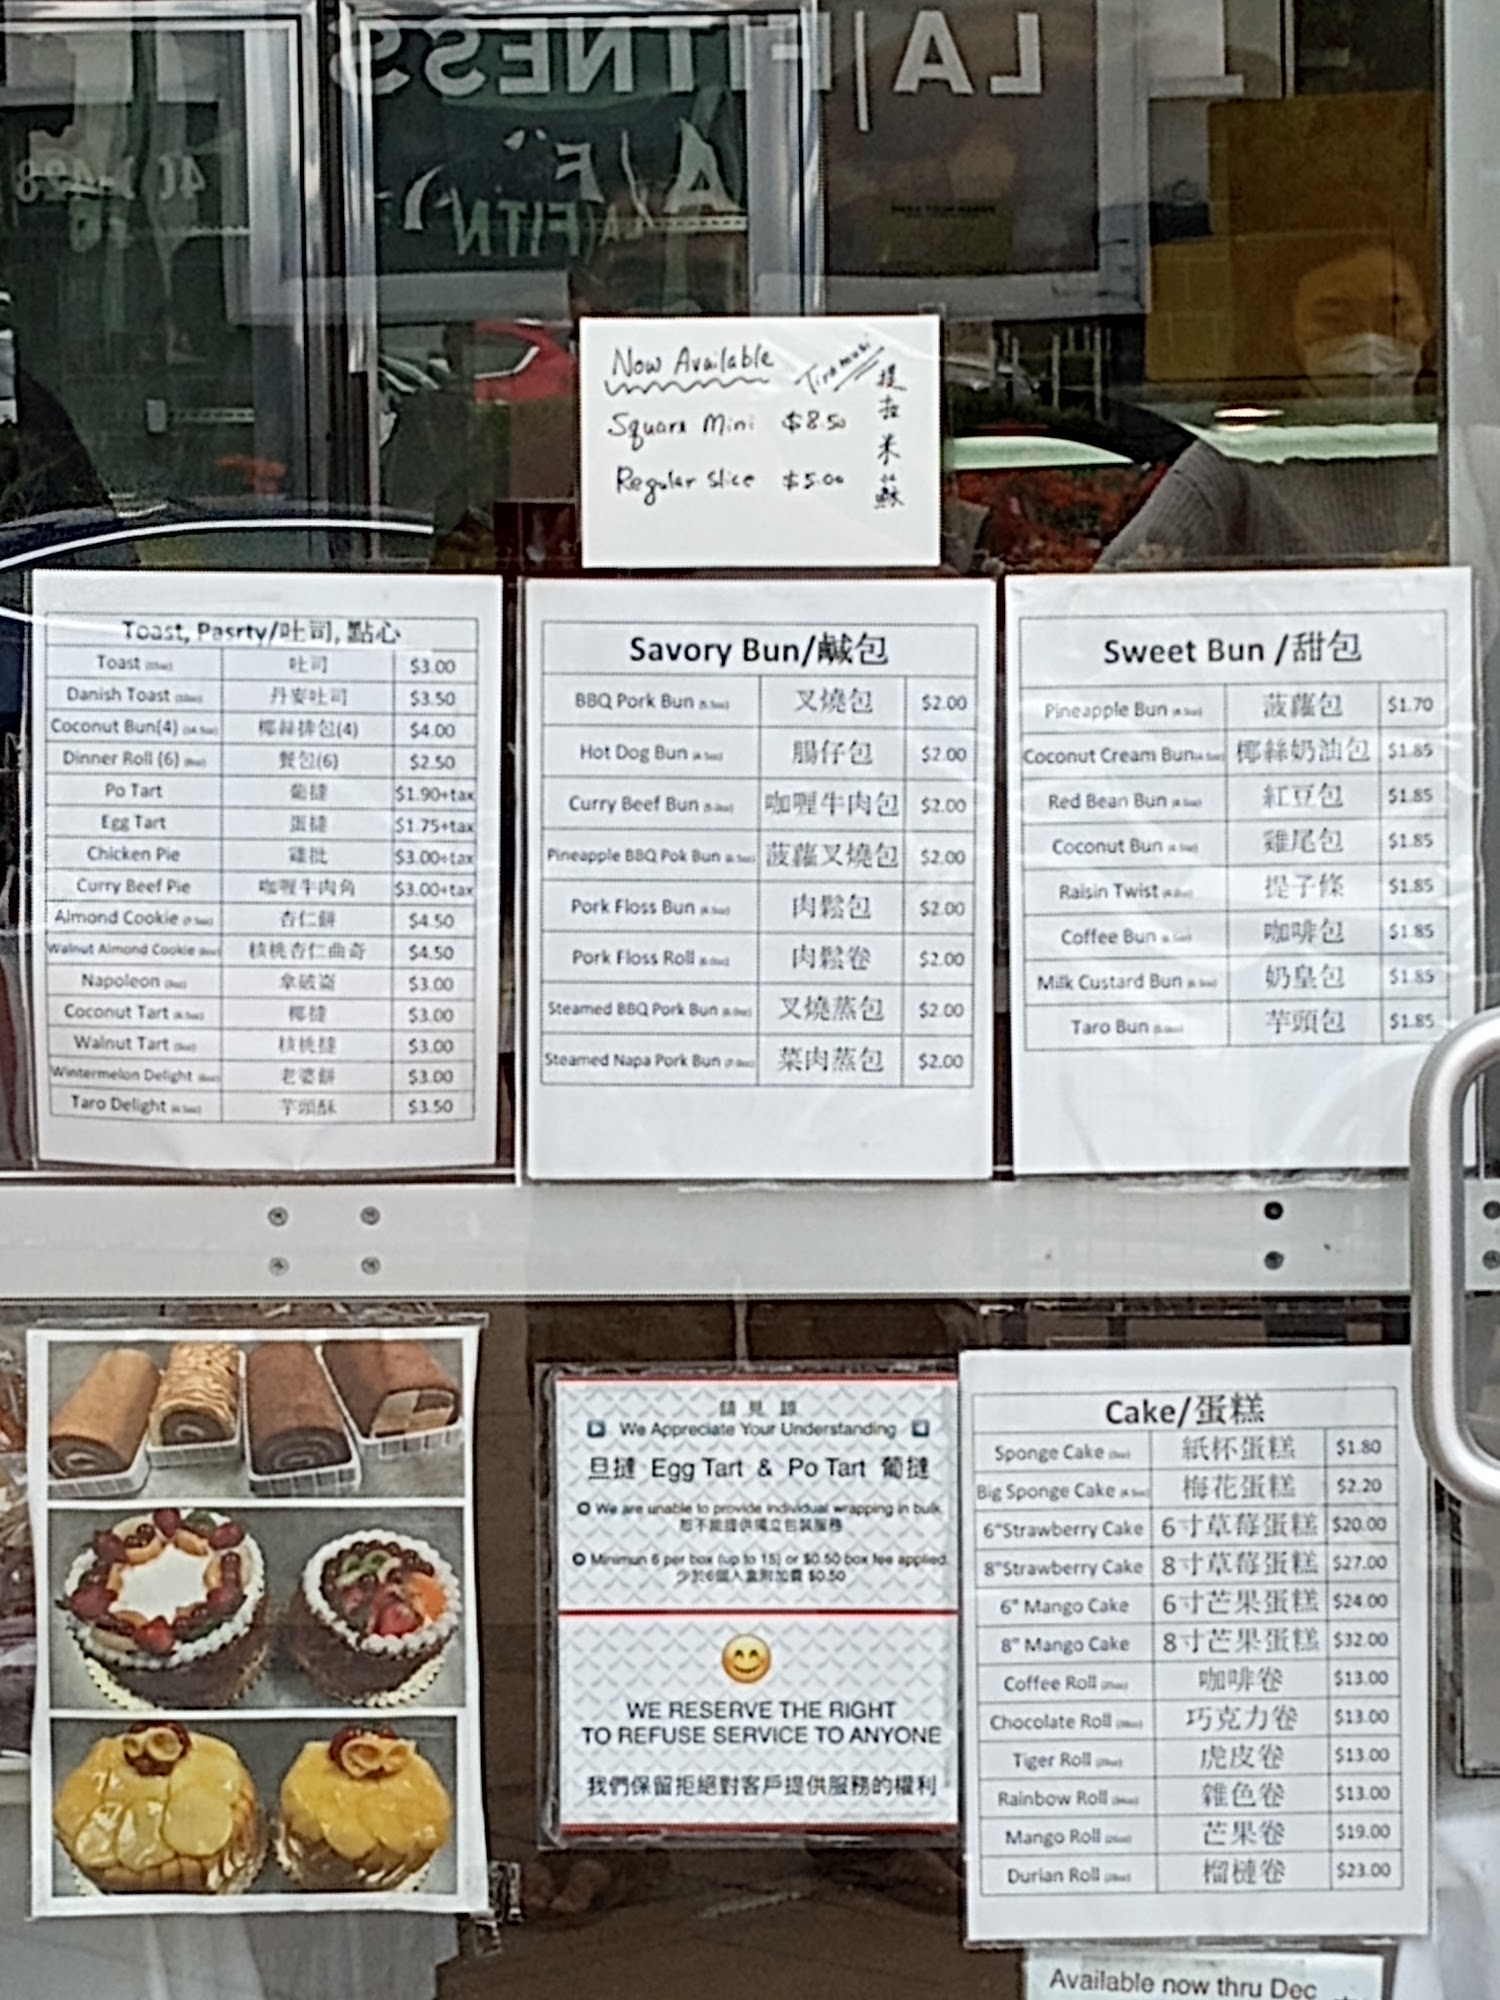 LA
FITNESS
Now Available
Tiramusi
提拉米蘇
Square Mini $8.50
Regular Slice $5.00
Toast, Pasrty/吐司, 點心
Toast 吐司 $3.00
Danish Toast 丹麥吐司 $3.50
Coconut Bun(4) 椰絲排包(4) $4.00
Dinner Roll (6) 餐包(6) $2.50
Po Tart 葡撻 $1.90+tax
Egg Tart 蛋撻 $1.75+tax
Chicken Pie 雞批 $3.00+tax
Curry Beef Pie 咖喱牛肉角 $3.00+tax
Almond Cookie 杏仁餅 $4.50
Walnut Almond Cookie 核桃杏仁曲奇 $4.50
Napoleon 拿破崙 $3.00
Coconut Tart 椰撻 $3.00
Walnut Tart 核桃撻 $3.00
Wintermelon Delight 老婆餅 $3.00
Taro Delight 芋頭酥 $3.50
Savory Bun/鹹包
BBQ Pork Bun 叉燒包 $2.00
Hot Dog Bun 腸仔包 $2.00
Curry Beef Bun 咖喱牛肉包 $2.00
Pineapple BBQ Pok Bun 菠蘿叉燒包 $2.00
Pork Floss Bun 肉鬆包 $2.00
Pork Floss Roll 肉鬆卷 $2.00
Steamed BBQ Pork Bun 叉燒蒸包 $2.00
Steamed Napa Pork Bun 菜肉蒸包 $2.00
Sweet Bun /甜包
Pineapple Bun 菠蘿包 $1.70
Coconut Cream Bun 椰絲奶油包 $1.85
Red Bean Bun 紅豆包 $1.85
Coconut Bun 雞尾包 $1.85
Raisin Twist 提子條 $1.85
Coffee Bun 咖啡包 $1.85
Milk Custard Bun 奶皇包 $1.85
Taro Bun 芋頭包 $1.85
請見諒
We Appreciate Your Understanding
旦撻 Egg Tart & Po Tart 葡撻
We are unable to provide individual wrapping in bulk.
恕不能提供獨立包裝服務
Minimun 6 per box (up to 15) or $0.50 box fee applied.
少於6個入盒附加費 $0.50
WE RESERVE THE RIGHT
TO REFUSE SERVICE TO ANYONE
我們保留拒絕對客戶提供服務的權利
Cake/蛋糕
Sponge Cake 紙杯蛋糕 $1.80
Big Sponge Cake 梅花蛋糕 $2.20
6"Strawberry Cake 6寸草莓蛋糕 $20.00
8"Strawberry Cake 8寸草莓蛋糕 $27.00
6" Mango Cake 6寸芒果蛋糕 $24.00
8" Mango Cake 8寸芒果蛋糕 $32.00
Coffee Roll 咖啡卷 $13.00
Chocolate Roll 巧克力卷 $13.00
Tiger Roll 虎皮卷 $13.00
Rainbow Roll 雜色卷 $13.00
Mango Roll 芒果卷 $19.00
Durian Roll 榴槤卷 $23.00
Available now thru Dec